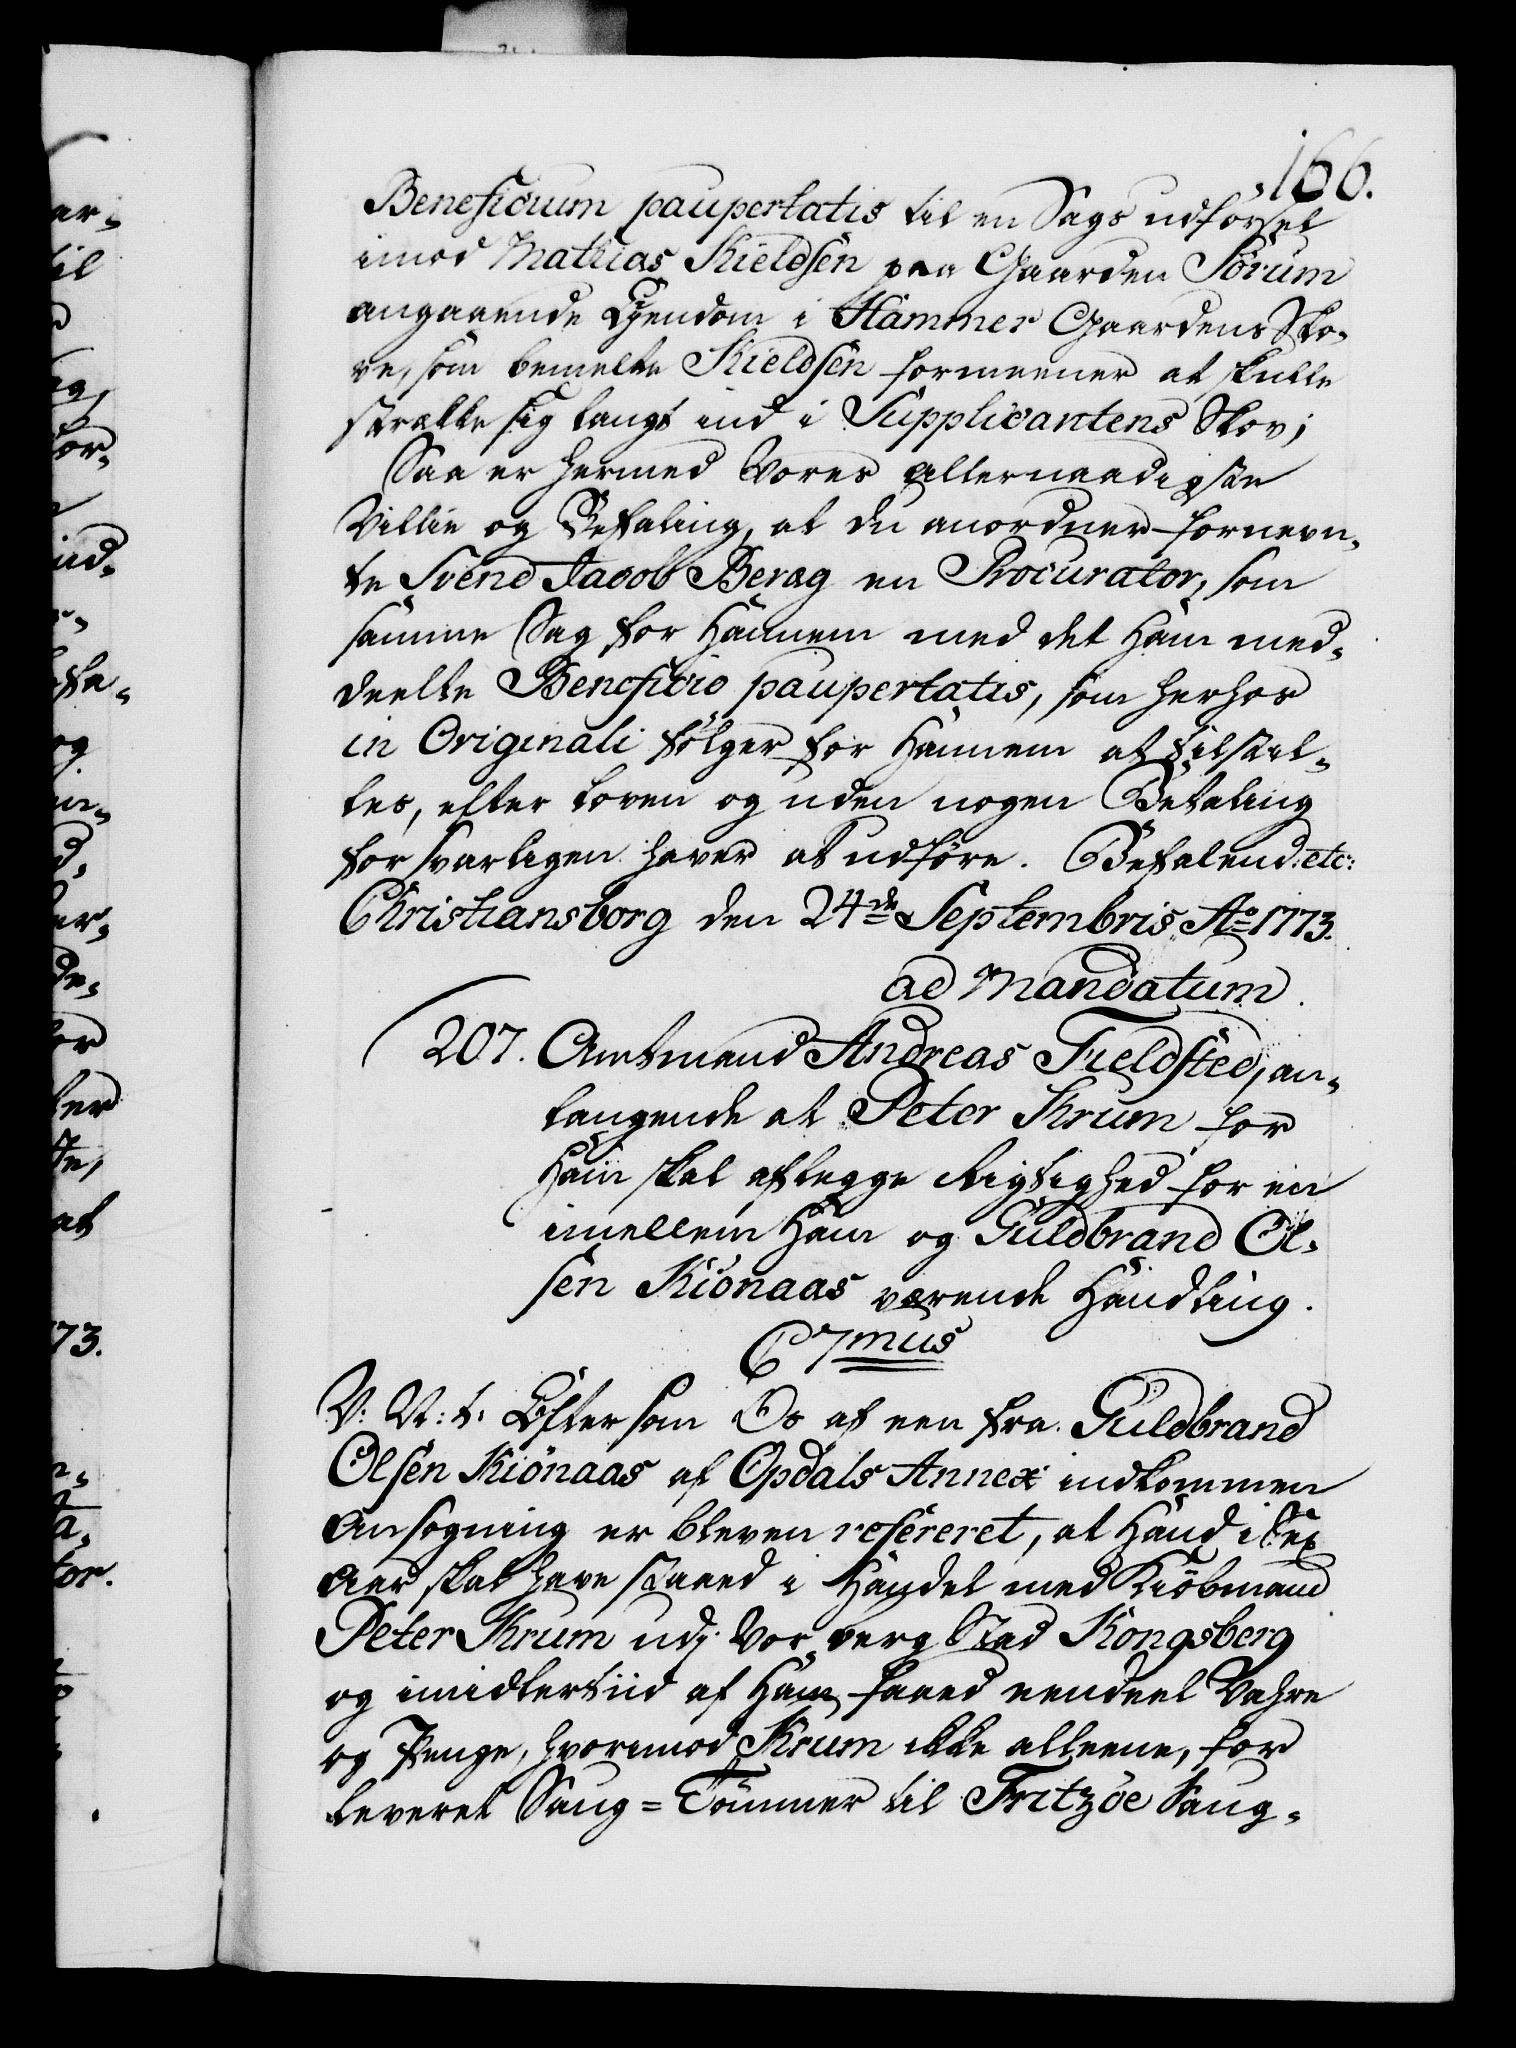 166.
Beneficium paupertatis til en Sags udførsel
imod Mathias Kieldsen paa Gaarden Sørum
angaaende Ejendom i Hammer Gaardens Sko-
ve, som bemelte Kieldsen formeener at skulle
strække sig langt ind i Supplicantens Skov;
Saa er hermed Vores allernaadigste
Villie og Befaling, at du anordner fornevn-
te Svend Jacob Beræg en Procurator, som
samme Sag for Hannem med det Ham med-
deelte Beneficio paupertatis, som herhos
in Originali følger for Hannem at tilstil-
les, efter Loven og uden nogen Betaling
forsvarligen haver at udføre. Befalend: etc:
Christiansborg den 24de Septembris Ao 1773.
ad Mandatum.
207. Amtmand Andreas Fieldsted, an-
langende at Peter Krum for
Ham skal aflegge Rigtighed for en
imellem Ham og Guldbrand Ol-
sen Kiönaas værende Handling.
C 7mus
V: N: t: Eftersom Os af een fra Guldbrand
Olsen Kiönaas af Opdals Annex indkommen
Ansøgning er bleven refereret, at Hand i Sex
Aar skal have staaed i Handel med Kiöbmand
Peter Krum udj Vor Berg Stad Kongsberg
og imidlertiid af Ham faaed eendeel Vahre
og Penge, hvorimod Krum ikke alleene, for
leveret Saug=Tömmer til Fritzöe Saug-
er-
til
73.